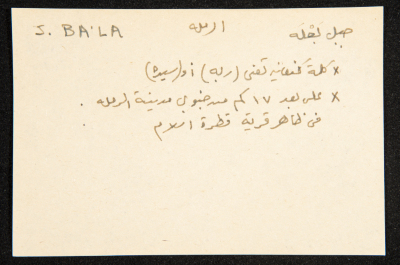 J. BA'LA الرمله جبل بَعْلَه
× كلمة كنعانية تعني (ربه) أو (سيدة)
× على بعد ١٧ كم من جنوبي مدينة الرمله .
في ظاهر قرية قطرة اسلام